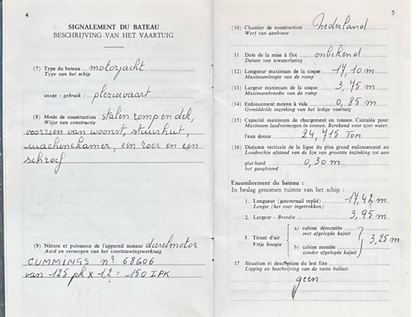 4
SIGNALEMENT DU BATEAU
BESCHRIJVING VAN HET VAARTUIG
(7) Type du bateau motorjacht
Type van het schip
usage - gebruik : pleziervaart
(8) Mode de construction stalen romp en dek,
Wijze van constructie
voorzien van woonst, stuurhut,
machinekamer, een roer en een
schroef
(9) Nature et puissance de l'appareil moteur dieselmotor
Aard en vermogen van het voortstuwingswerktuig
CUMMINGS n° 68606
van 125 pk x 1,2 = 150 IPK
5
(10) Chantier de construction Nederland
Werf van aanbouw
11 Date de la mise à flot onbekend
Datum van tewaterlating
(12) Longueur maximum de la coque 17,10 m
Maximumlengte van de romp
(13) Largeur maximum de la coque 3,75 m
Maximumbreedte van de romp
(14) Enfoncement moyen à vide 0,85 m
Gemiddelde inzinking van het ledige vaartuig
(15) Capacité maximum de chargement en tonnes. Calculée pour
Maximum laadvermogen in tonnen. Berekend voor zoet water.
l'eau douce 24,715 Ton
(16) Distance verticale de la ligne du plus grand enfoncement au
Loodrechte afstand van de lijn van grootste inzinking tot aan
plat-bord 0,30 m
het gangboord
Encombrement du bateau :
In beslag genomen ruimte van het schip :
1. Longueur (gouvernail replié) 17,42 m
Lengte (het roer ingetrokken)
2. Largeur - Breedte 3,95 m
3. Tirant d'air
Vrije hoogte
a) cabine démontée
met afgelegde kajuit
b) cabine montée
zonder afgelegde kajuit
3,25 m
17 Situation et description du lest fixe
Ligging en beschrijving van de vaste ballast
geen